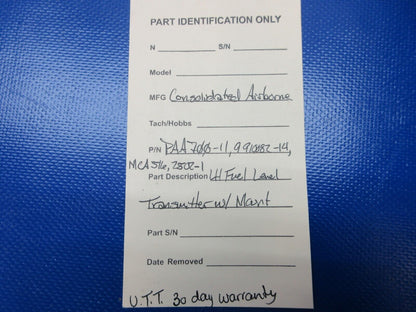 PART IDENTIFICATION ONLY
N S/N
Model
MFG Consolidated Airborne
Tach/Hobbs
P/N PAA700-11, 9910182-14,
MCA516, 2502-1
Part Description LH Fuel Level
Transmitter w/ Mount
Part S/N
Date Removed
U.T.T. 30 day warranty